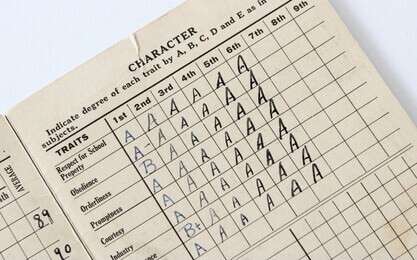 CHARACTER
Indicate degree of each trait by A, B, C, D and E as in
subjects.
TRAITS 1st 2nd 3rd 4th 5th 6th 7th 8th 9th
Respect for School
Property A A A A A A
Obedience A- A A A A A
Orderliness B A A A A A
Promptness A A A A A A
Courtesy A A A A A A
Industry B+ A A A A A
A A A A A A
AVERAGE
89
90